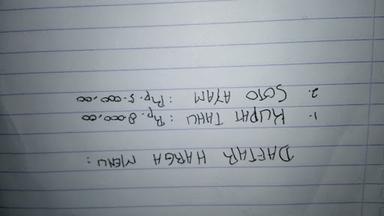 DAFTAR HARGA MENU :
1. KUPAT TAHU : Rp. 8.000,00
2. SOTO AYAM : Rp. 5.000,00